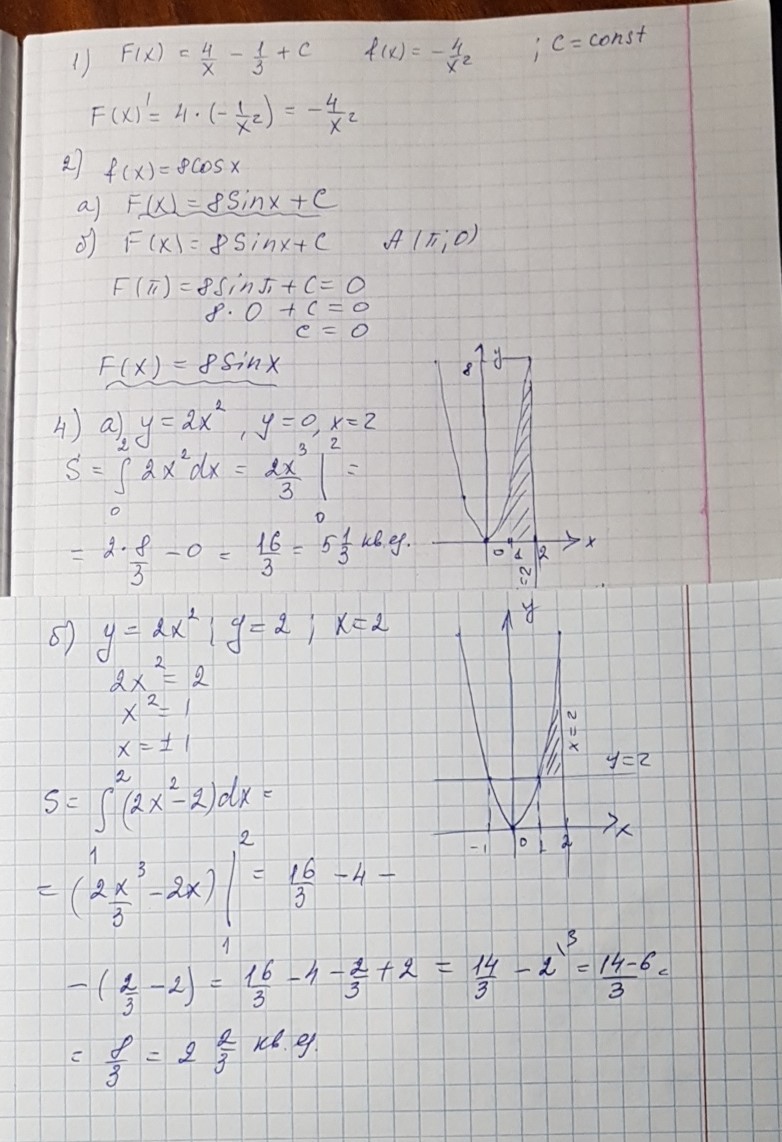 1) F(x) = 4/x - 1/3 + C f(x) = - 4/x² ; C = const
F(x)' = 4 · (- 1/x²) = - 4/x²
2) f(x) = 8cosx
а) F(x) = 8Sinx + C
б) F(x) = 8Sinx + C A(π; 0)
F(π) = 8Sinπ + C = 0
8 · 0 + C = 0
C = 0
F(x) = 8Sinx
4) а) y = 2x², y = 0, x = 2
S = ∫₀² 2x² dx = 2x³/3 |₀² =
= 2·8/3 - 0 = 16/3 = 5 1/3 кв.ед.
8 y
0 1 2 x
=2
б) y = 2x² ; y = 2 ; x = 2
2x² = 2
x² = 1
x = ±1
S = ∫₁² (2x² - 2)dx =
= (2x³/3 - 2x) |₁² = 16/3 - 4 -
- (2/3 - 2) = 16/3 - 4 - 2/3 + 2 = 14/3 - 2\³ = 14-6/3 =
= 8/3 = 2 2/3 кв.ед.
y
x = 2
y = 2
-1 0 1 2 x